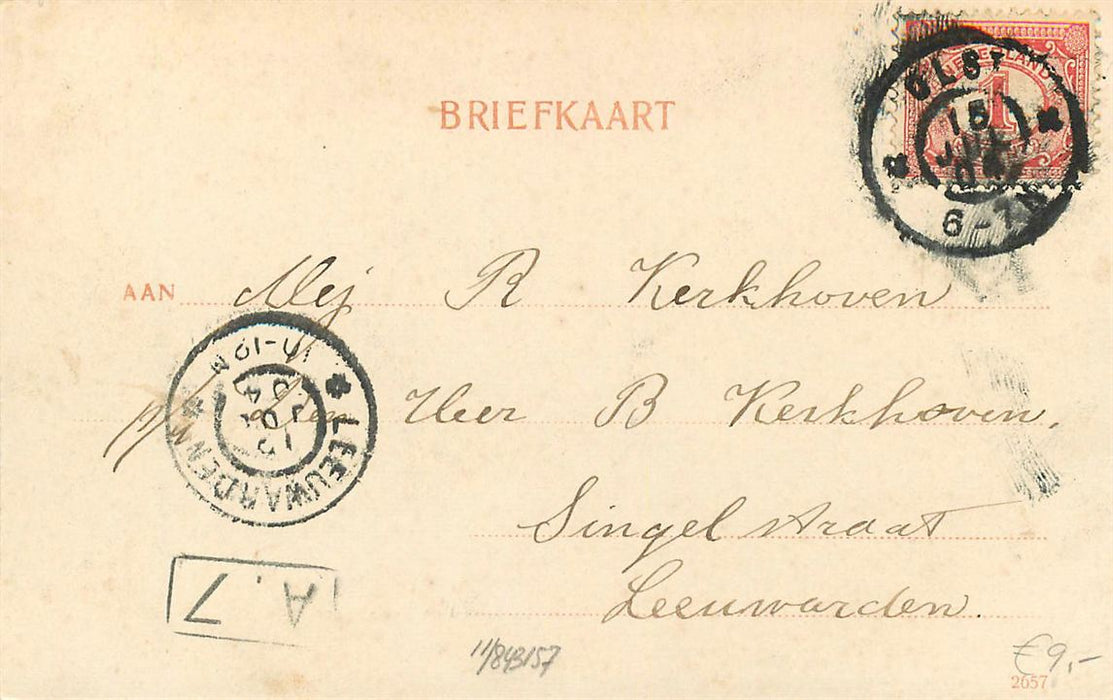 BRIEFKAART
NEDERLAND
1
OLST
15
JUL
04
6-7N
AAN Mej R Kerkhoven
p/a Den Heer B Kerkhoven.
Singelstraat
Leeuwarden.
LEEUWARDEN
10-10N
15
04
A.7
11/843157
€9,-
2657